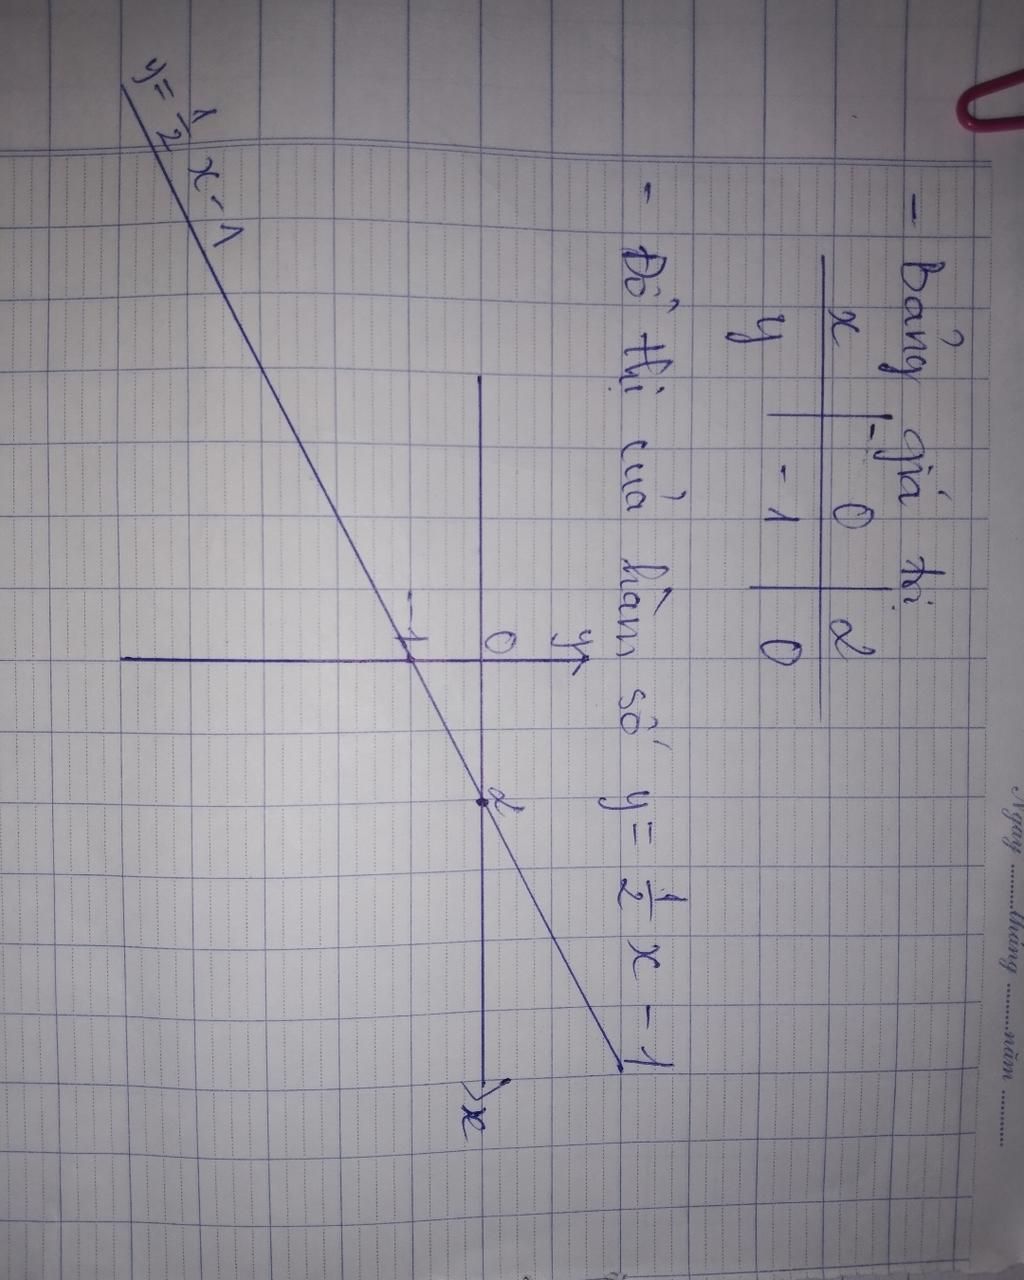 Ngày ......... tháng ......... năm .........
- Bảng giá trị
x 0 2
y -1 0
- Đồ thị của hàm số y = 1/2 x - 1
y
0
2
x
-1
y = 1/2 x - 1